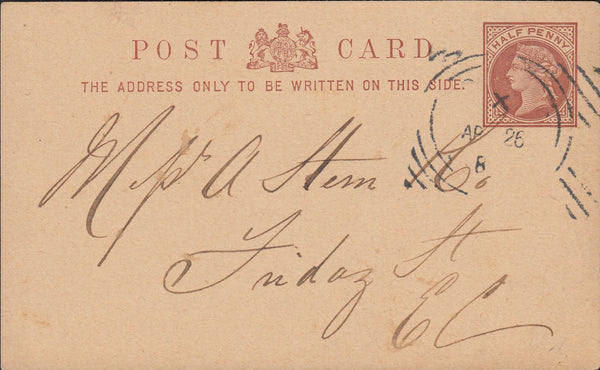 POST CARD
THE ADDRESS ONLY TO BE WRITTEN ON THIS SIDE.
HALF PENNY
X
AP 26
8
Messrs A Stern & Co
Friday St
E C